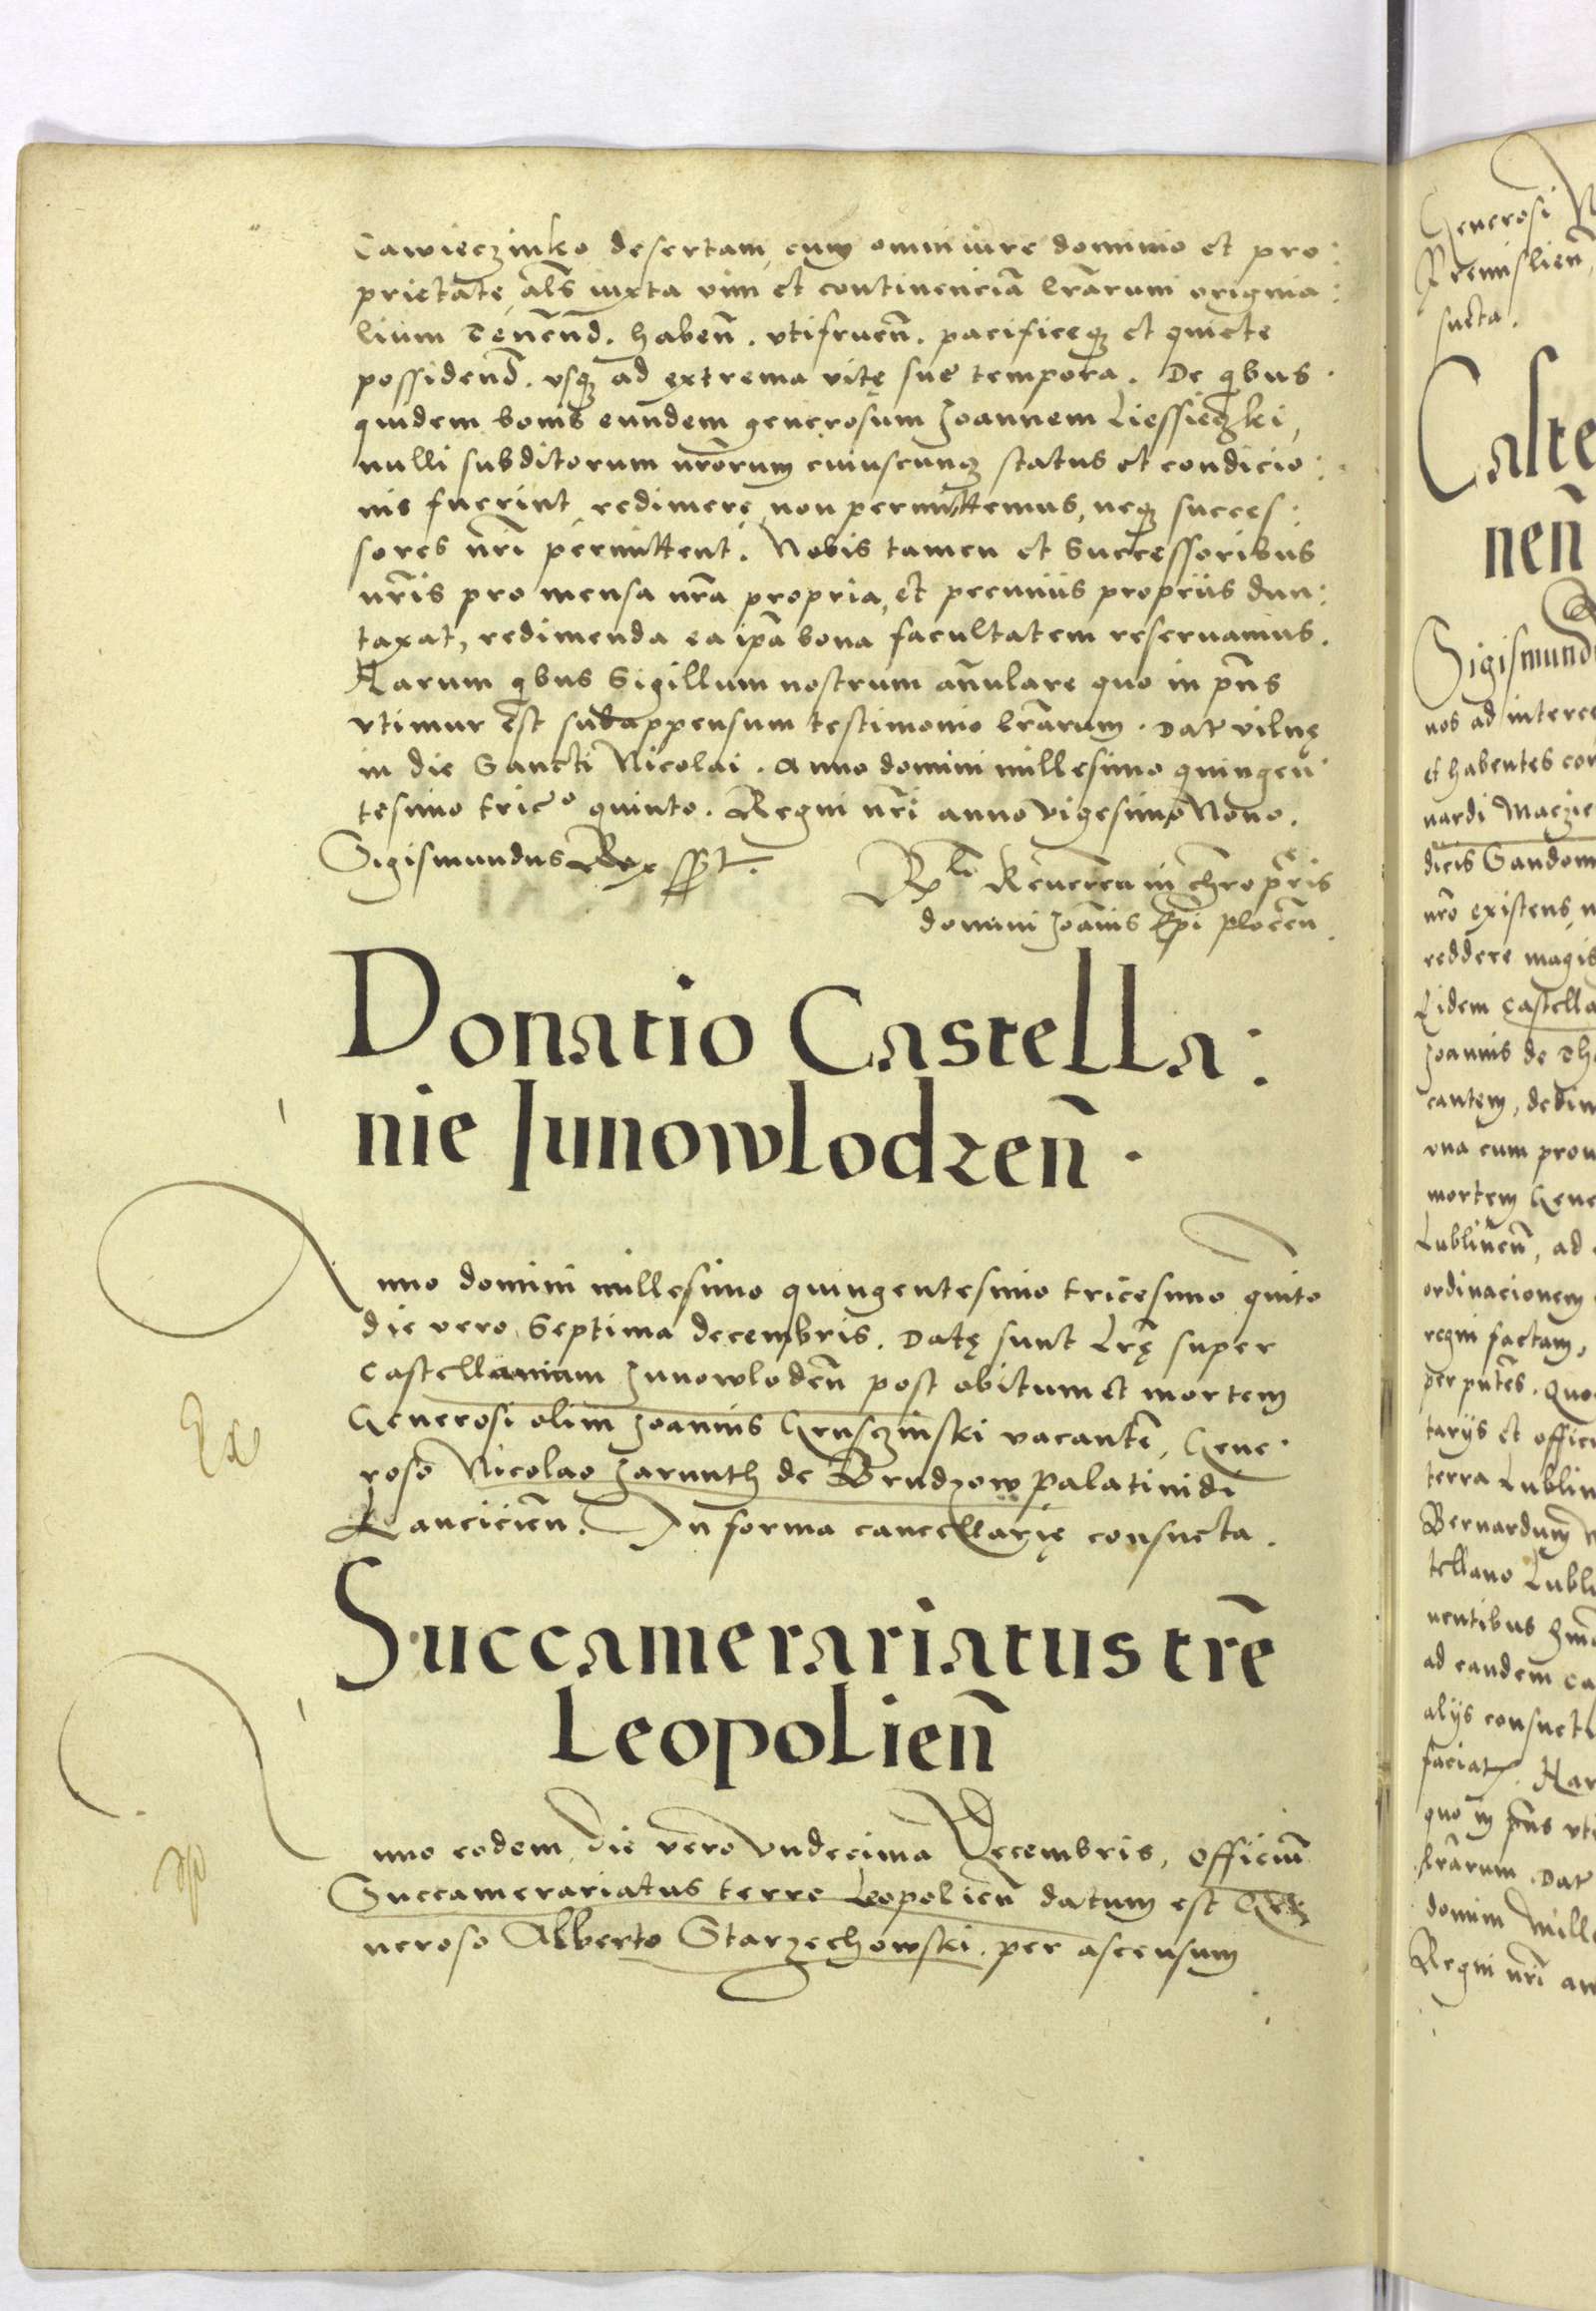 Cawieczinko desertam, cum omni iure dominio et pro:
prietate, als̄ iuxta vim et continenciā lr̄arum origina:
lium Tenēnd. habeñ. vtifrueñ. pacificeq3 et quiete
possidend̄. vsq3 ad extrema vitę sue tempora. De qbus
quidem bonis eundem generosum Joannem Liessieczki,
nulli subditorum nr̄orum cuiuscunq3 status et condicio:
nis fuerint redimere non permittemus, neq3 succes:
sores nr̄i permittent. Nobis tamen et Successoribus
nr̄is pro mensa nr̄a propria, et pecuniis propriis dun:
taxat, redimenda ea ip̄a bona facultatem reseruamus.
Harum qbus Sigillum nostrum añulare quo in pn̄s
vtimur est subappensum testimonio lr̄arum. Dat vilnę
in die Sancti Nicolai. Anno domini millesimo quingen
tesimo tric̄o quinto. Regni nr̄i anno vigesimo Nono.
Sigismundus Rex sst.
Rlō Reueren in chr̄o pr̄is
domini Joānis Ep̄i ploceñ.
Donatio Castella:
nie Junowlodzeñ.
nno domini millesimo quingentesimo tricesimo quito
die vero Septima decembris. Datę sunt Lr̄ę super
Castellaniam Junowlodeñ post obitum et mortem
Generosi olim Joannis Grusczinski vacantē, Gene
roso Nicolao Jarunth de Brudzow palatinidi
Lancicieñ. In forma cancellarię consueta.
Ex
Succamerariatus trē
Leopolieñ
nno eodem die vero vndecima Decembris, officiū
Succamerariatus terre Leopolieñ datum est Ge
neroso Alberto Starzechowski. per ascensum
Generosi
Premislień
sueta.
Caste
neñ
Sigismund
nos ad interce
et habentes con
nardi Maczie
dicis Sandom
nr̄o existens
reddere magis
Eidem Castella
Joannis de Th
cantem, dedim
vna cum prou
mortem Gene
Lublineñ, ad
ordinacionem
regni factam,
per pn̄tes. Quo
tarijs et offici
terra Lublin
Bernardum
tellano Lubli
nentibus
ad eandem ca
alijs consuet
faciat. Har
quo in pn̄s vt
lr̄arum. Dat
domini Mille
Regni nr̄i an